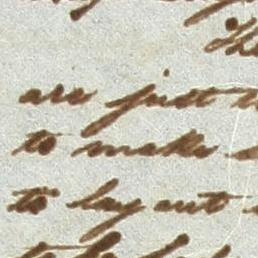 The
are just
to make
to lay out